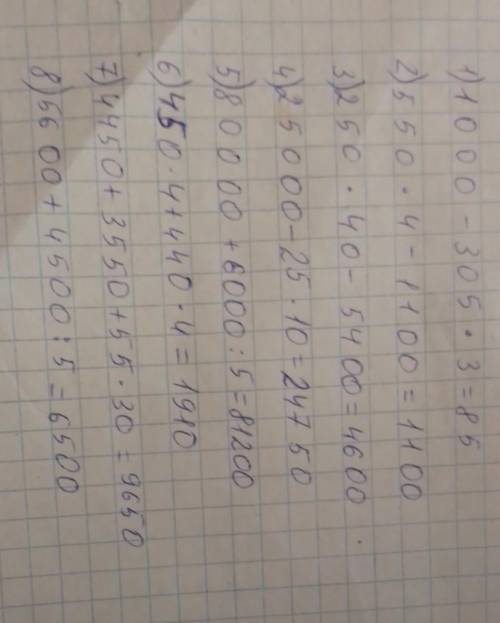 1) 1000 - 305 · 3 = 85
2) 550 · 4 - 1100 = 1100
3) 250 · 40 - 5400 = 4600
4) 25000 - 25 · 10 = 24750
5) 80000 + 6000 : 5 = 81200
6) 450 · 4 + 440 · 4 = 1910
7) 4450 + 3550 + 55 · 30 = 9650
8) 5600 + 4500 : 5 = 6500